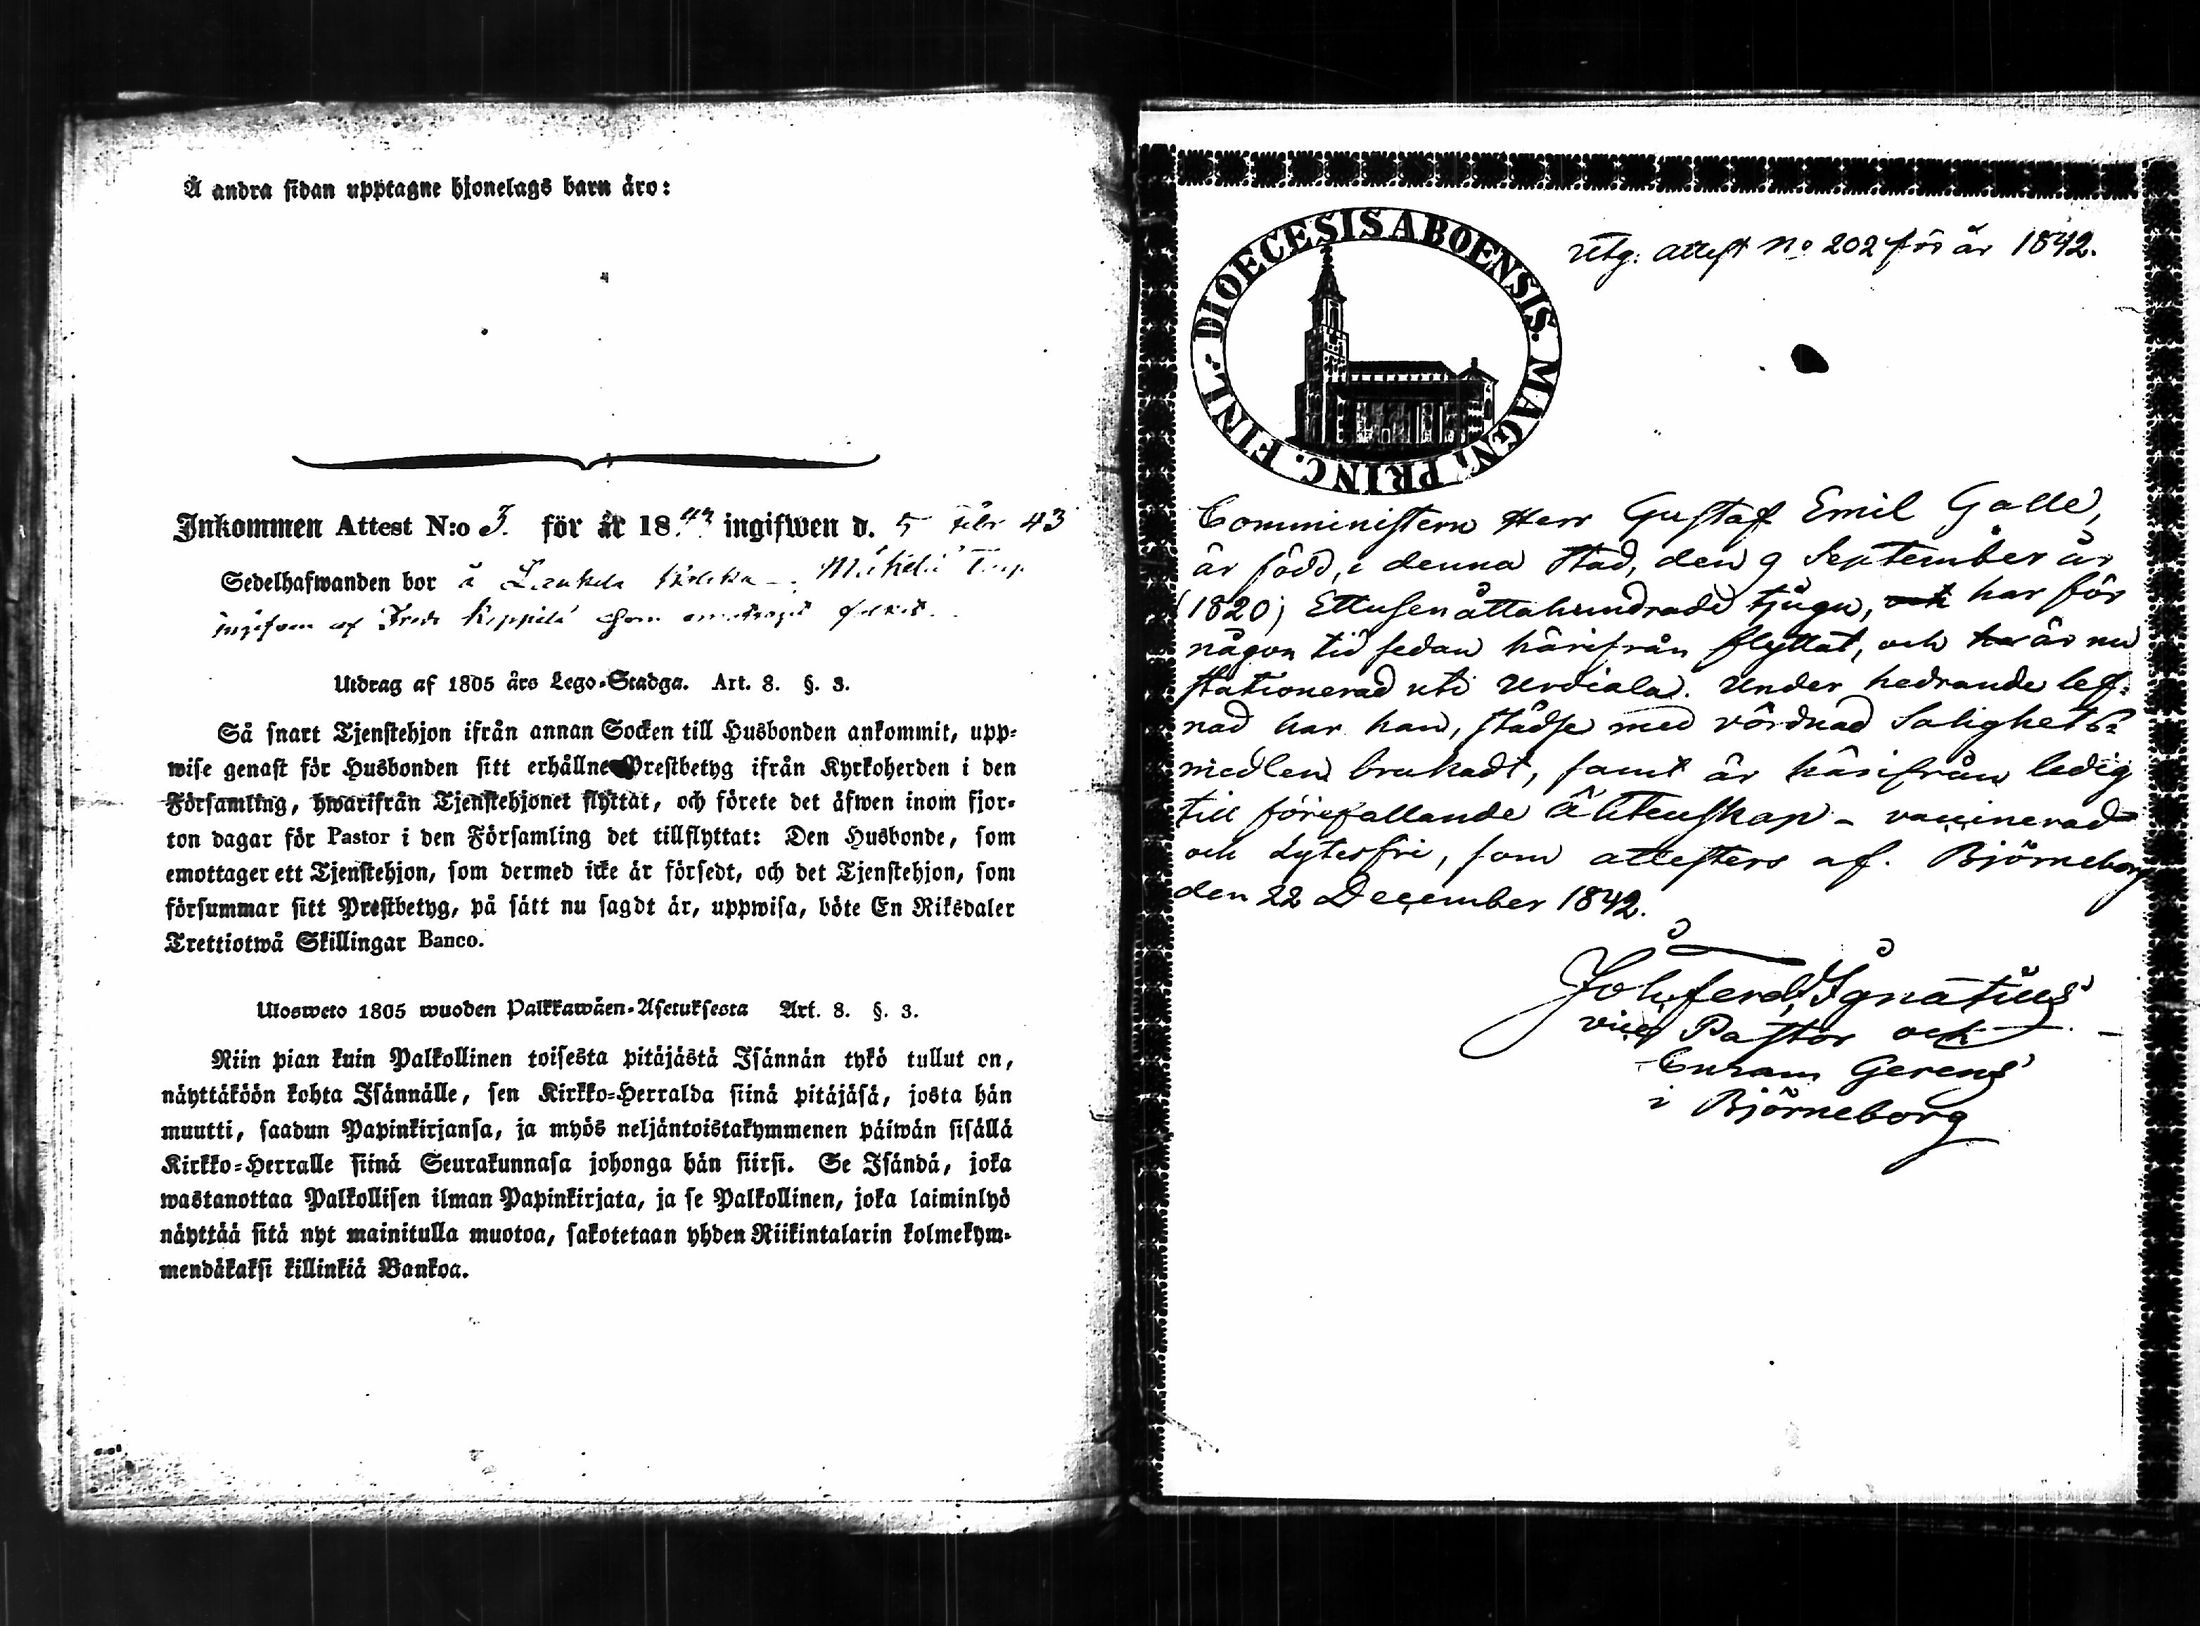 Å andra sidan upptagne hjonelags barn äro:
Inkommen Attest N:o 3. för år 1843 ingifwen d. 5 Febr 43
Sedelhafwanden bor å
af som
Utdrag af 1805 års Lego-Stadga. Art. 8. §. 3.
Så snart Tjenstehjon ifrån annan Socken till Husbonden ankommit, upp-
wise genast för Husbonden sitt erhållne Prestbetyg ifrån Kyrkoherden i den
Församling, hwarifrån Tjenstehjonet flyttat, och förete det äfwen inom fjor-
ton dagar för Pastor i den Församling det tillflyttat: Den Husbonde, som
emottager ett Tjenstehjon, som dermed icke är försedt, och det Tjenstehjon, som
försummar sitt Prestbetyg, på sätt nu sagdt är, uppwisa, böte En Riksdaler
Trettiotwå Skillingar Banco.
Ulosweto 1805 wuoden Palkkawäen-Asetuksesta Art. 8. §. 3.
Niin pian kuin Palkollinen toisesta pitäjästä Isännän tykö tullut on,
näyttäköön kohta Isännälle, sen Kirkko-Herralda siinä pitäjäsä, josta hän
muutti, saadun Papinkirjansa, ja myös neljäntoistakymmenen päiwän sisällä
Kirkko-Herralle siinä Seurakunnasa johonga hän siirsi. Se Isändä, joka
wastanottaa Palkollisen ilman Papinkirjata, ja se Palkollinen, joka laiminlyö
näyttää sitä nyt mainitulla muotoa, sakotetaan yhden Riikintalarin kolmekym-
mendäkaksi killinkiä Bankoa.
DIOECESIS ABOENSIS. MAGN. PRINC. FINL.
Utg. attest No 202 för år 1842.
Comministern Herr Gustaf Emil Gallé,
är född, i denna Stad, den 9 September år
(1820) Ettusenåttahundrade tjugu, och har för
någon tid sedan härifrån flyttat, och har är nu
stationerad uti Urdiala. Under hedrande lef-
nad har han, städse med vördnad Salighets
medlen brukadt, samt är härifrån ledig
till förefallande Äktenskap – vaccinerad
och Lytesfri, som attesters af. Björneborg
den 22 December 1842.
Joh. Ferd. Ignatius
vice Pastor och
Curam Gerens
i Björneborg